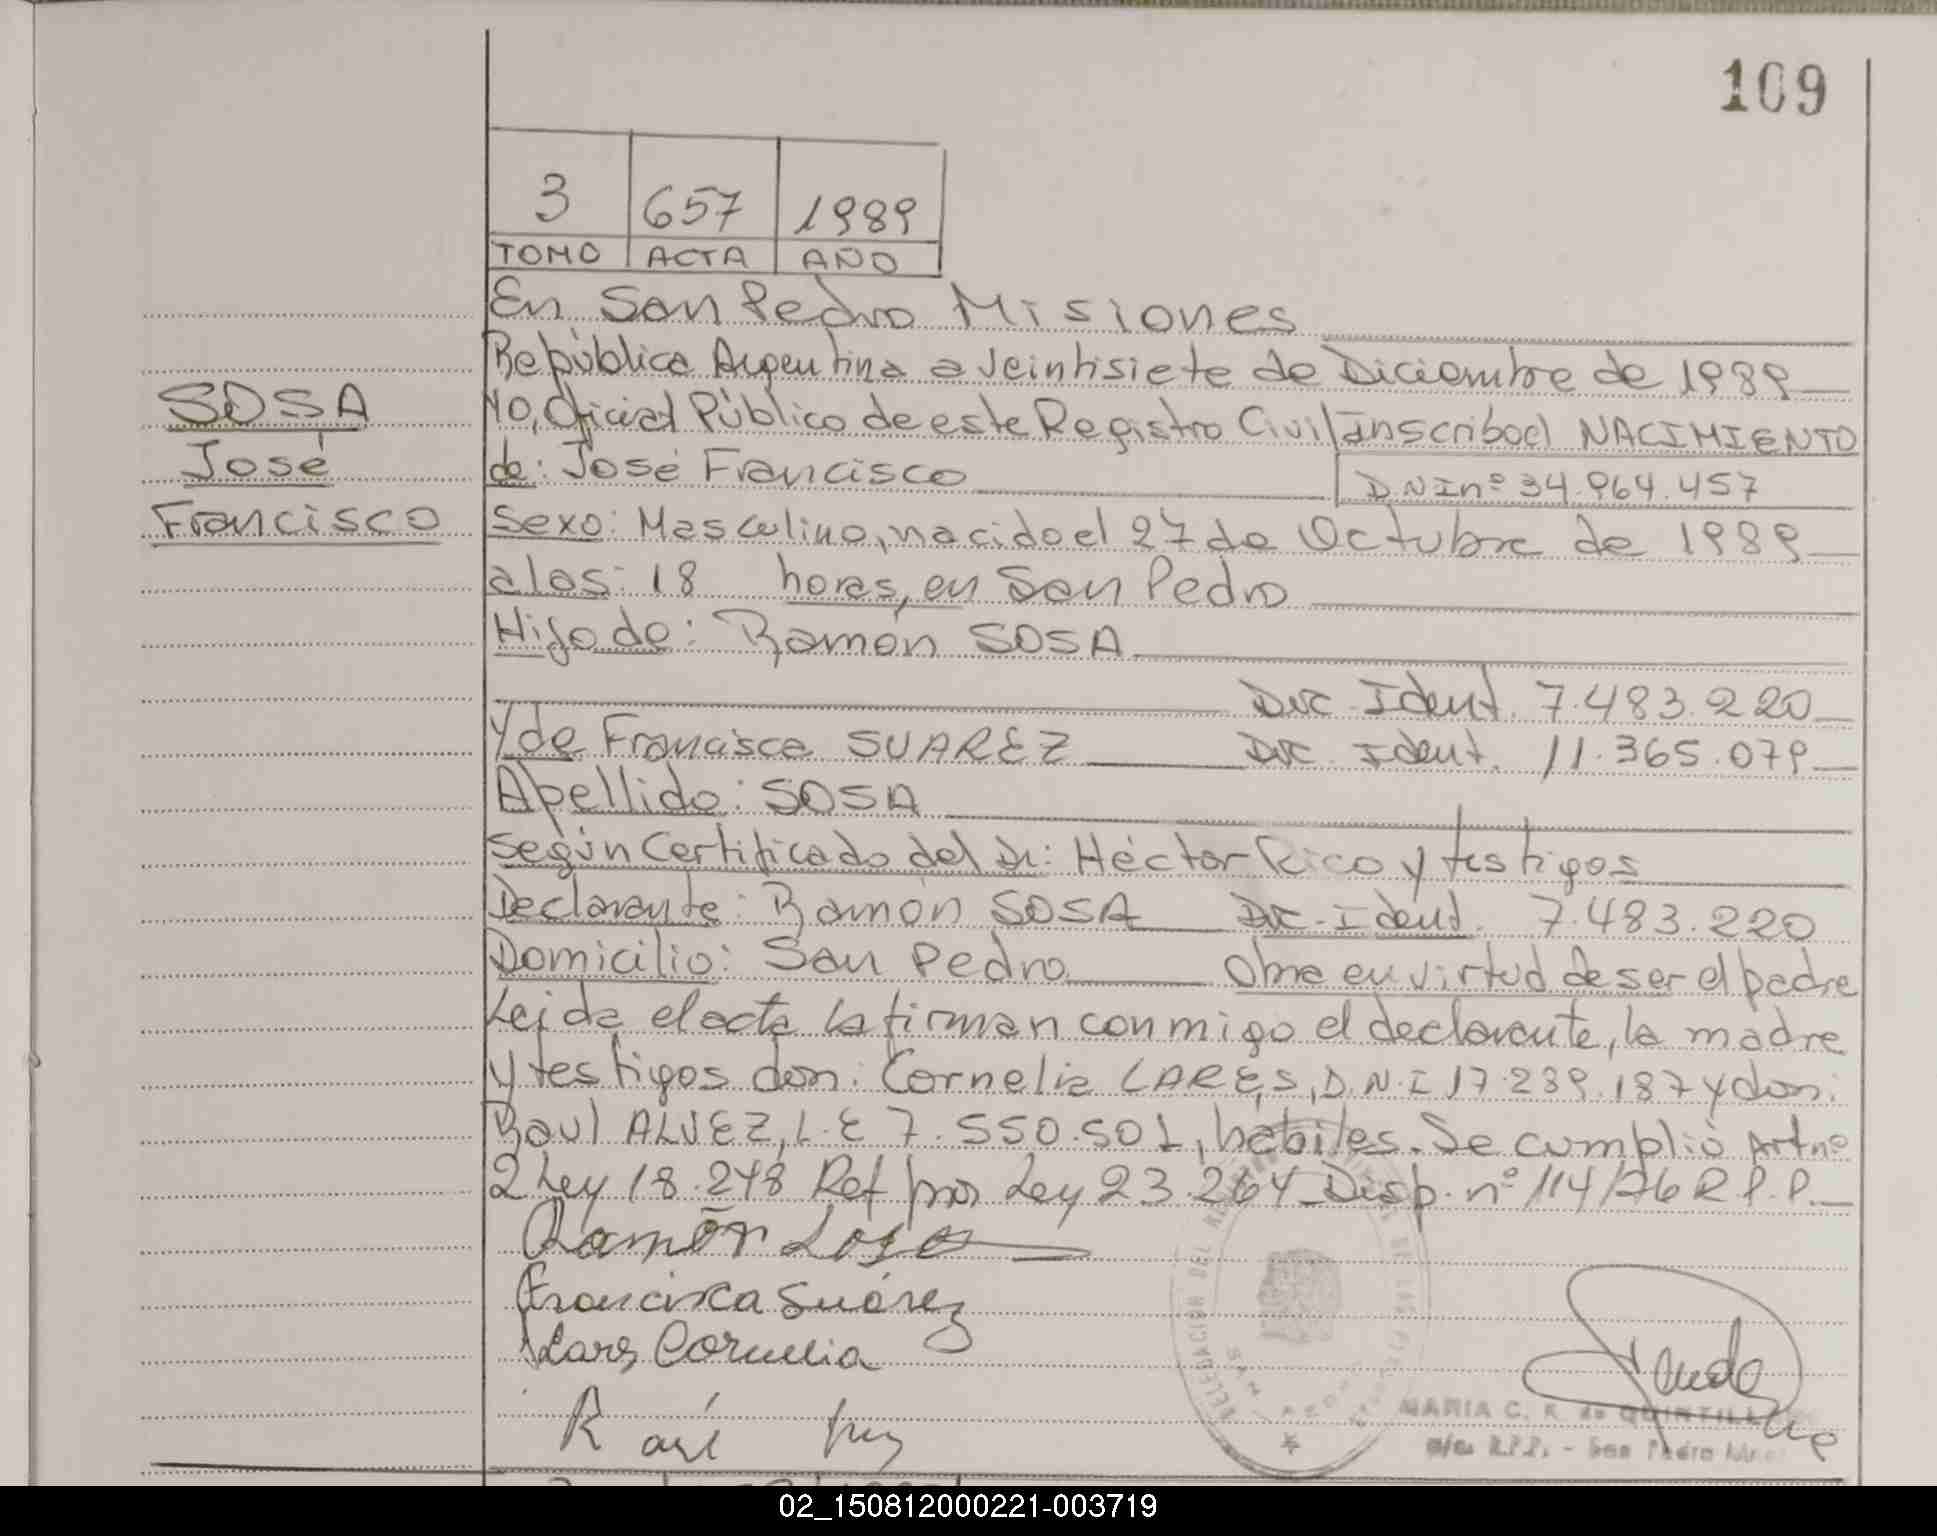 109
3 657 1989
TOMO ACTA AÑO
En San Pedro Misiones
República Argentina a veintisiete de Diciembre de 1989
SOSA
Yo, Oficial Público de este Registro Civil inscribo el NACIMIENTO
José
de: José Francisco D.N.I nº 34.964.457
Francisco
Sexo: Masculino, nacido el 27 de Octubre de 1989
a las: 18 horas, en San Pedro
Hijo de: Ramón SOSA
Doc. Ident. 7.483.220
Y de Francisca SUAREZ Doc. Ident. 11.365.079
Apellido: SOSA
Según Certificado del Dr: Héctor Rico y testigos
Declarante: Ramón SOSA Doc. Ident. 7.483.220
Domicilio: San Pedro Obra en virtud de ser el padre
Leida el acta la firman conmigo el declarante, la madre
y testigos don: Cornelia LARES, D.N.I 17.239.187 y don:
Raul ALVEZ, L.E 7.550.501, hábiles. Se cumplió Art nº
2 Ley 18.248 Ref por Ley 23.264 Disp. nº 114/76 R.P.P.
Ramón Sosa
Francisca Suárez
Lares Cornelia
Raúl
DELEGACIÓN DEL
MARIA C. R. de QUINTILL
R.P.P. - San Pedro
02_150812000221-003719